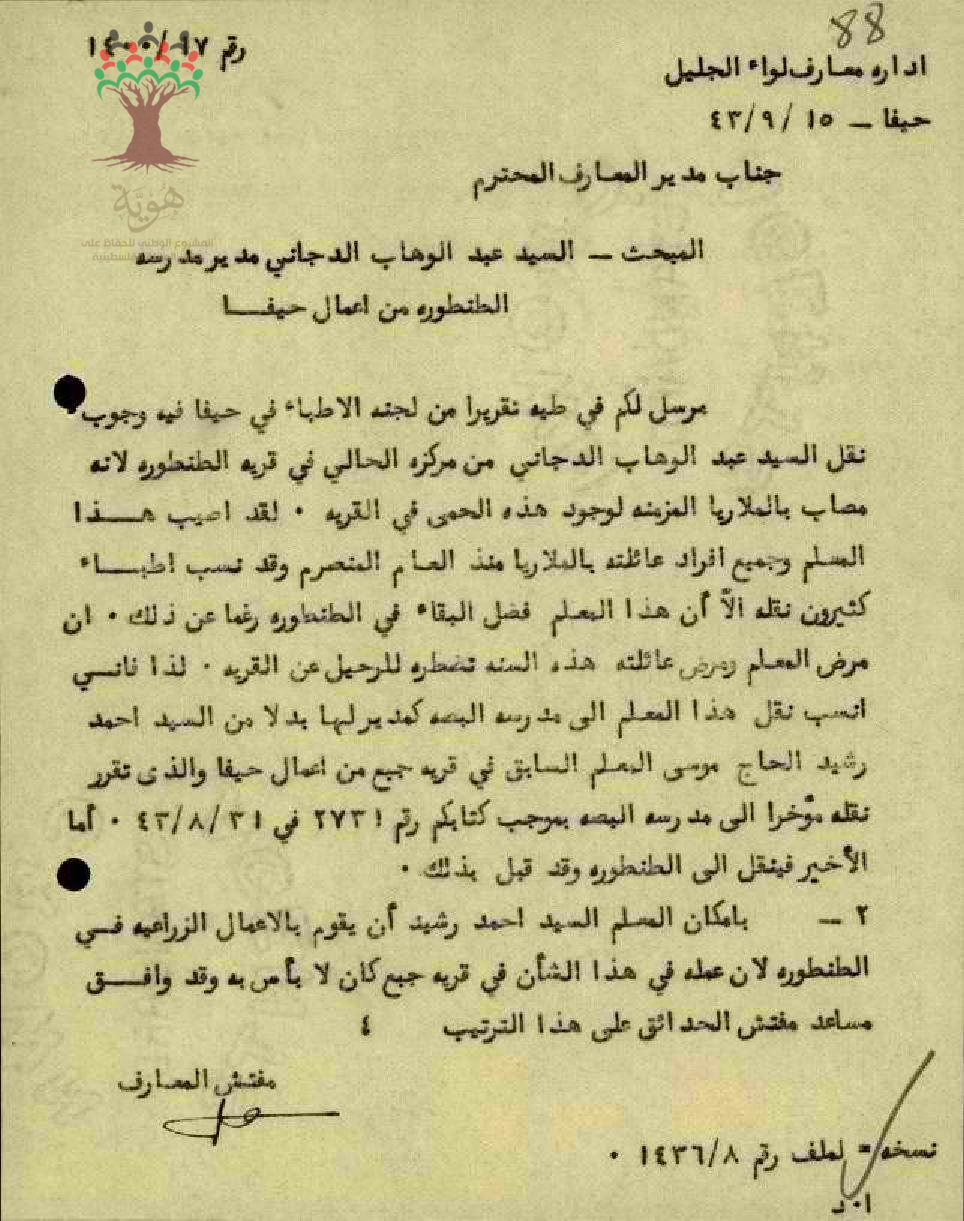 88
رقم ١٧/١٤٠٠
اداره معارف لواء الجليل
حيفا – ١٥ /٤٣/٩
جناب مدير المعارف المحترم
هُوِيَّة
المشروع الوطني للحفاظ على
المبحث – السيد عبد الوهاب الدجاني مدير مدرسه
الطنطوره من اعمال حيفا
مرسل لكم في طيه تقريرا من لجنه الاطباء في حيفا فيه وجوب
نقل السيد عبد الوهاب الدجاني من مركزه الحالي في قريه الطنطوره لانه
مصاب بالملاريا المزمنه لوجود هذه الحمى في القريه ٠ لقد اصيب هذا
المعلم وجميع افراد عائلته بالملاريا منذ العام المنصرم وقد نسب اطباء
كثيرون نقله الاّ أن هذا المعلم فضل البقاء في الطنطوره رغما عن ذلك ٠ ان
مرض المعلم ومرض عائلته هذه السنه تضطره للرحيل عن القريه ٠ لذا فانسي
انسب نقل هذا المعلم الى مدرسه البصه كمدير لها بدلا من السيد احمد
رشيد الحاج موسى المعلم السابق في قريه جبع من اعمال حيفا والذى تقرر
نقله مؤخرا الى مدرسه البصه بموجب كتابكم رقم ٢٧٣١ في ٤٣/٨/٣١ ٠ أما
الأخير فينقل الى الطنطوره وقد قبل بذلك ٠
٢ – بامكان المعلم السيد احمد رشيد أن يقوم بالاعمال الزراعيه في
الطنطوره لان عمله في هذا الشأن في قريه جبع كان لا بأس به وقد وافق
مساعد مفتش الحدائق على هذا الترتيب ٤
مفتش المعارف
نسخه = لملف رقم ١٤٣٦/٨ ٠
ا٠د